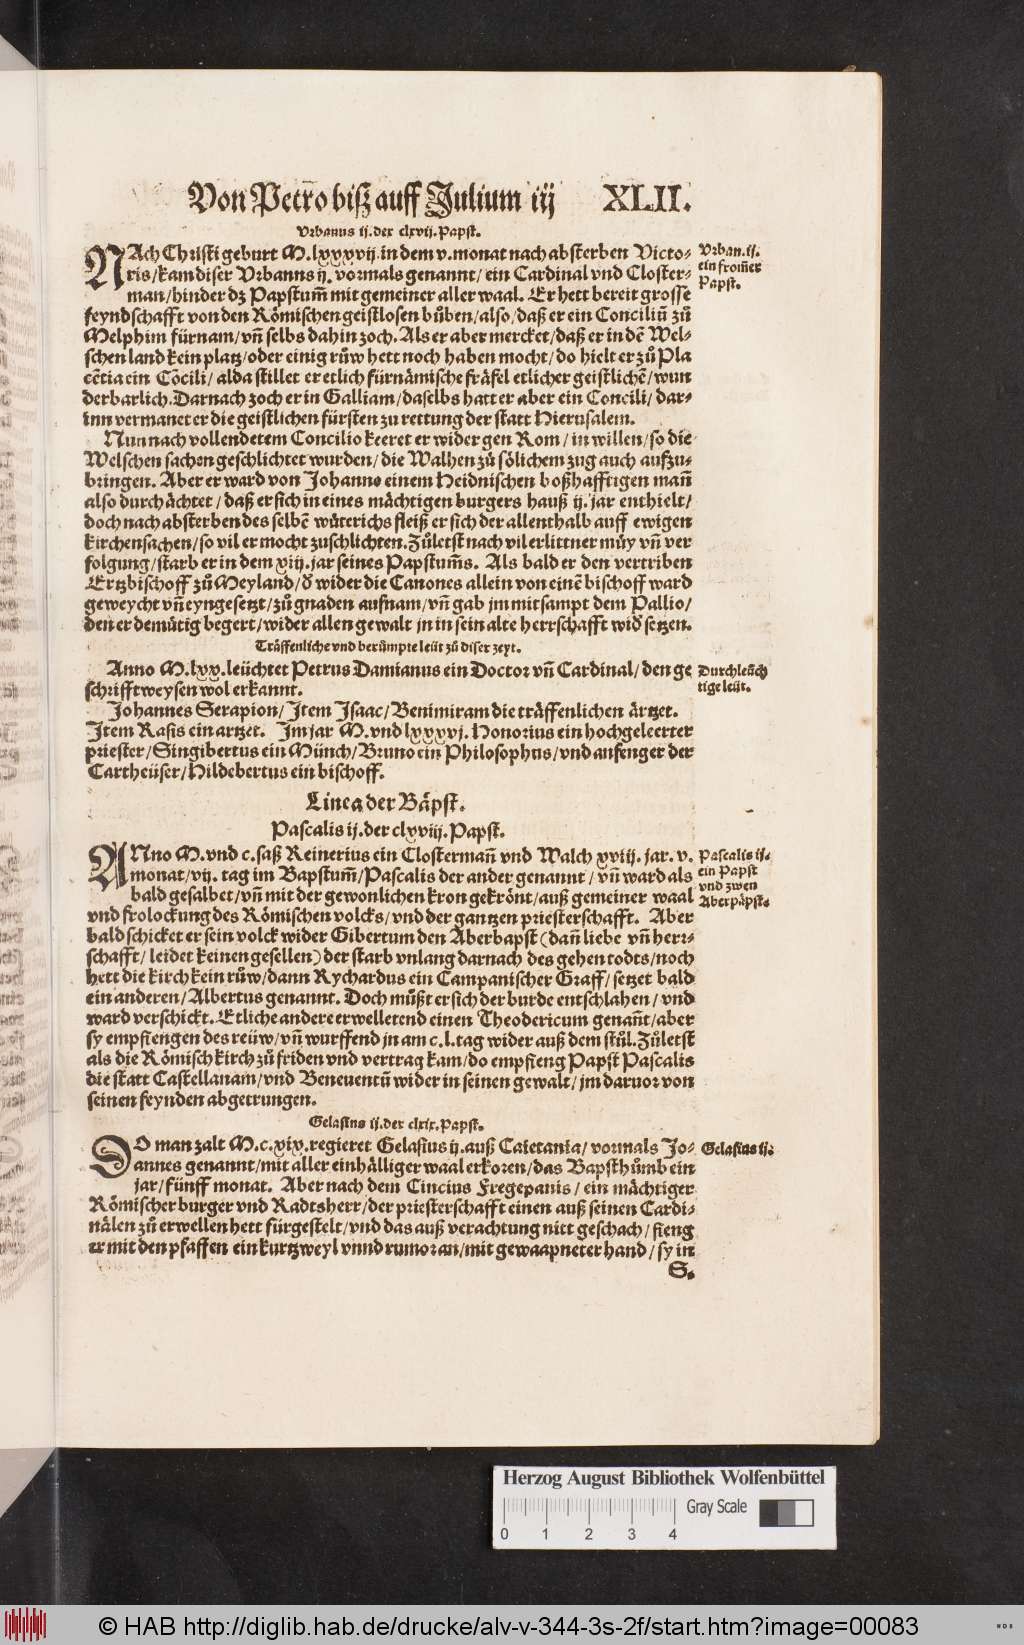 Von Petro biß auff Julium iij XLII.
Vrbanus ij. der clxvij. Papst.
NAch Christi geburt M.lxxxvij. in dem v. monat nach absterben Victo-
ris/ kam diser Vrbanus ij. vormals genannt/ ein Cardinal vnd Closter-
man/ hinder dz Papstum̃ mit gemeiner aller waal. Er hett bereit grosse
feyndschafft von den Römischen geistlosen bůben/ also/ daß er ein Conciliũ zů
Melphim fürnam/ vñ selbs dahin zoch. Als er aber mercket/ daß er in dẽ Wel-
schen land kein platz/ oder einig růw hett noch haben mocht/ do hielt er zů Pla
cẽtia ein Cõcili/ alda stillet er etlich fürnämische fräfel etlicher geistlichẽ/ wun
derbarlich. Darnach zoch er in Galliam/ daselbs hatt er aber ein Concili/ dar-
inn vermanet er die geistlichen fürsten zu rettung der statt Hierusalem.
Nun nach vollendetem Concilio keeret er wider gen Rom/ in willen/ so die
Welschen sachen geschlichtet wurden/ die Walhen zů sölichem zug auch aufzu-
bringen. Aber er ward von Johanne einem Heidnischen boßhafftigen mañ
also durchächtet/ daß er sich in eines mächtigen burgers hauß ij. jar enthielt/
doch nach absterben des selbẽ wüterichs fleiß er sich der allenthalb auff ewigen
kirchensachen/ so vil er mocht zuschlichten. Zůletst nach vil erlittner můy vñ ver
folgung/ starb er in dem xiij. jar seines Papstum̃s. Als bald er den vertriben
Ertzbischoff zů Meyland/ d̃ wider die Canones allein von einẽ bischoff ward
geweycht vñ eyngesetzt/ zů gnaden aufnam/ vñ gab jm mitsampt dem Pallio/
den er demütig begert/ wider allen gewalt jn in sein alte herrschafft wid̃ setzen.
Träffenliche vnd berůmpte leüt zů diser zeyt.
Anno M.lxx. leüchtet Petrus Damianus ein Doctor vñ Cardinal/ den ge
schrifftweysen wol erkannt.
Johannes Serapion/ Item Isaac/ Benimiram die träffenlichen ärtzet.
Item Rasis ein artzet. Im jar M. vnd lxxxvj. Honorius ein hochgeleerter
priester/ Singibertus ein Münch/ Bruno ein Philosophus/ vnd anfenger der
Cartheüser/ Hildebertus ein bischoff.
Linea der Bäpst.
Pascalis ij. der clxviij. Papst.
ANno M. vnd c. saß Reinerius ein Clostermañ vnd Walch xviij. jar. v.
monat/ vij. tag im Bapstum̃/ Pascalis der ander genannt/ vñ ward als
bald gesalbet/ vñ mit der gewonlichen kron gekrönt/ auß gemeiner waal
vnd frolockung des Römischen volcks/ vnd der gantzen priesterschafft. Aber
bald schicket er sein volck wider Gibertum den Aberbapst (dañ liebe vñ herr-
schafft/ leidet keinen gesellen) der starb vnlang darnach des gehen todts/ noch
hett die kirch kein růw/ dann Rychardus ein Campanischer Graff/ setzet bald
ein anderen/ Albertus genannt. Doch můßt er sich der burde entschlahen/ vnd
ward verschickt. Etliche andere erwelletend einen Theodericum genañt/ aber
sy empfiengen des reüw/ vñ wurffend jn am c.l. tag wider auß dem stůl. Zůletst
als die Römisch kirch zů friden vnd vertrag kam/ do empfieng Papst Pascalis
die statt Castellanam/ vnd Beneuentũ wider in seinen gewalt/ jm daruor von
seinen feynden abgetrungen.
Gelasius ij. der clxix. Papst.
DO man zalt M.c.xix. regieret Gelasius ij. auß Caietania/ vormals Jo-
annes genannt/ mit aller einhälliger waal erkoren/ das Bapsthůmb ein
jar/ fünff monat. Aber nach dem Cincius Fregepanis/ ein mächtiger
Römischer burger vnd Radtsherr/ der priesterschafft einen auß seinen Cardi-
nälen zů erwellen hett fürgestelt/ vnd das auß verachtung nitt geschach/ fieng
er mit den pfaffen ein kurtzweyl vnnd rumor an/ mit gewaapneter hand/ sy in
S.
Vrban. ij.
ein from̃er
Papst.
Durchleüch
tige leüt.
Pascalis ij.
ein Papst
vnd zwen
Aberpäpst.
Gelasius ij.
Herzog August Bibliothek Wolfenbüttel
Gray Scale
0 1 2 3 4
© HAB http://diglib.hab.de/drucke/alv-v-344-3s-2f/start.htm?image=00083